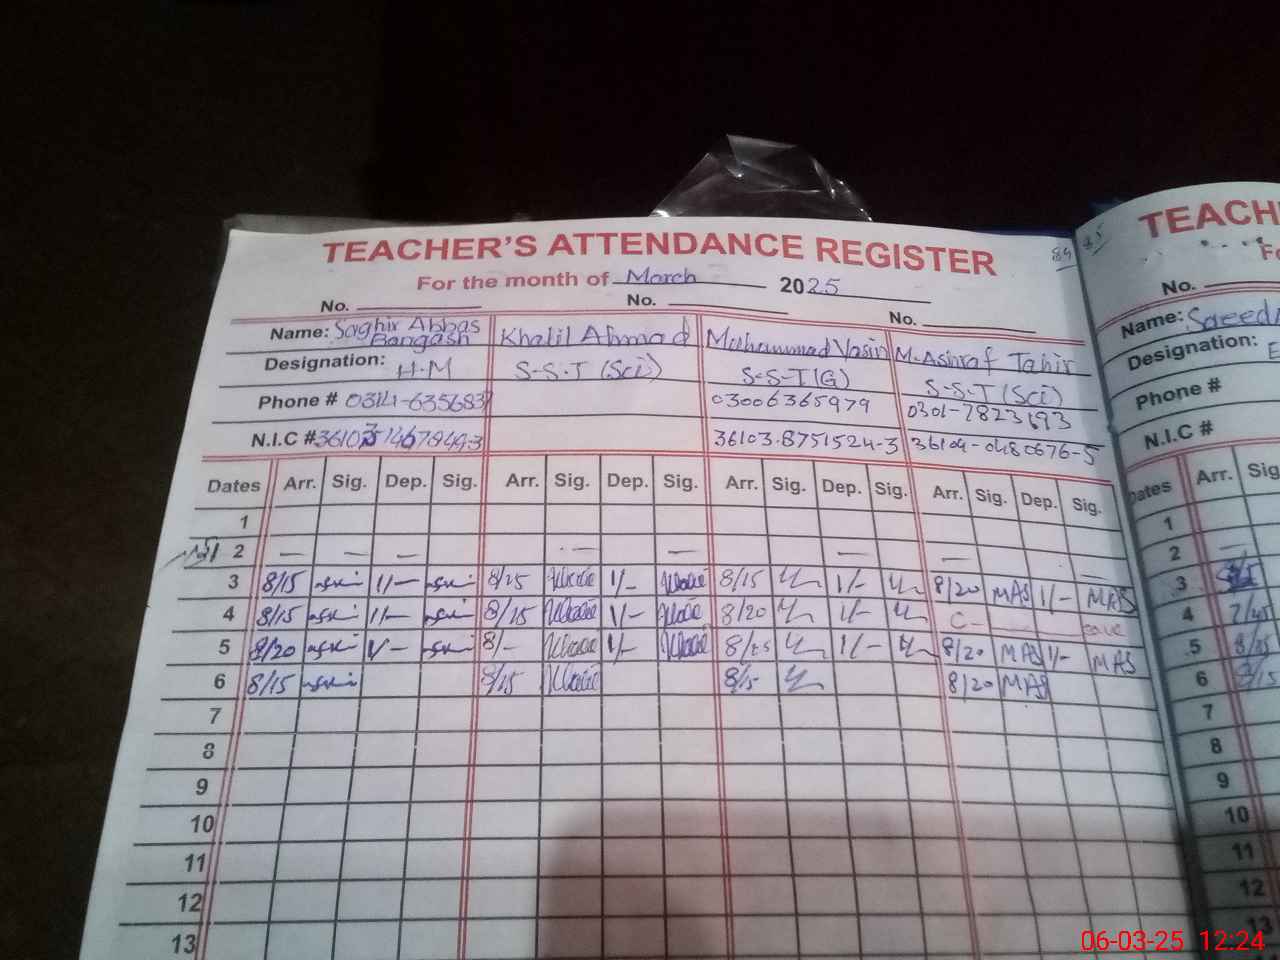 TEACHER'S ATTENDANCE REGISTER
84 85
For the month of March 2025
No. No. No.
Name: Saghir Abbas Bangash Khalil Ahmad Muhammad Yasin M. Ashraf Tahir
Designation: H.M S-S-T (Sci) S-S-T(G) S-S-T (Sci)
Phone # 0314-6356837 03006365979 0301-7823693
N.I.C # 36103-8751524-3 36104-0480676-5
Dates Arr. Sig. Dep. Sig. Arr. Sig. Dep. Sig. Arr. Sig. Dep. Sig. Arr. Sig. Dep. Sig.
1
2 — — — — — — — —
3 8/15 1/- 8/25 1/- 8/15 1/- 8/20 MAS 1/- MAS
4 8/15 1/- 8/15 1/- 8/20 1/- C- Leave
5 8/20 1/- 8/- 1/- 8/25 1/- 8/20 MAS 1/- MAS
6 8/15 8/15 8/15 8/20 MAS
7
8
9
10
11
12
13
TEACH
Fo
No.
Name: Saeed
Designation: E
Phone #
N.I.C #
Dates Arr. Sig
1
2 —
3
4 7/45
5 8/25
6 8/15
7
8
9
10
11
12
13
06-03-25 12:24